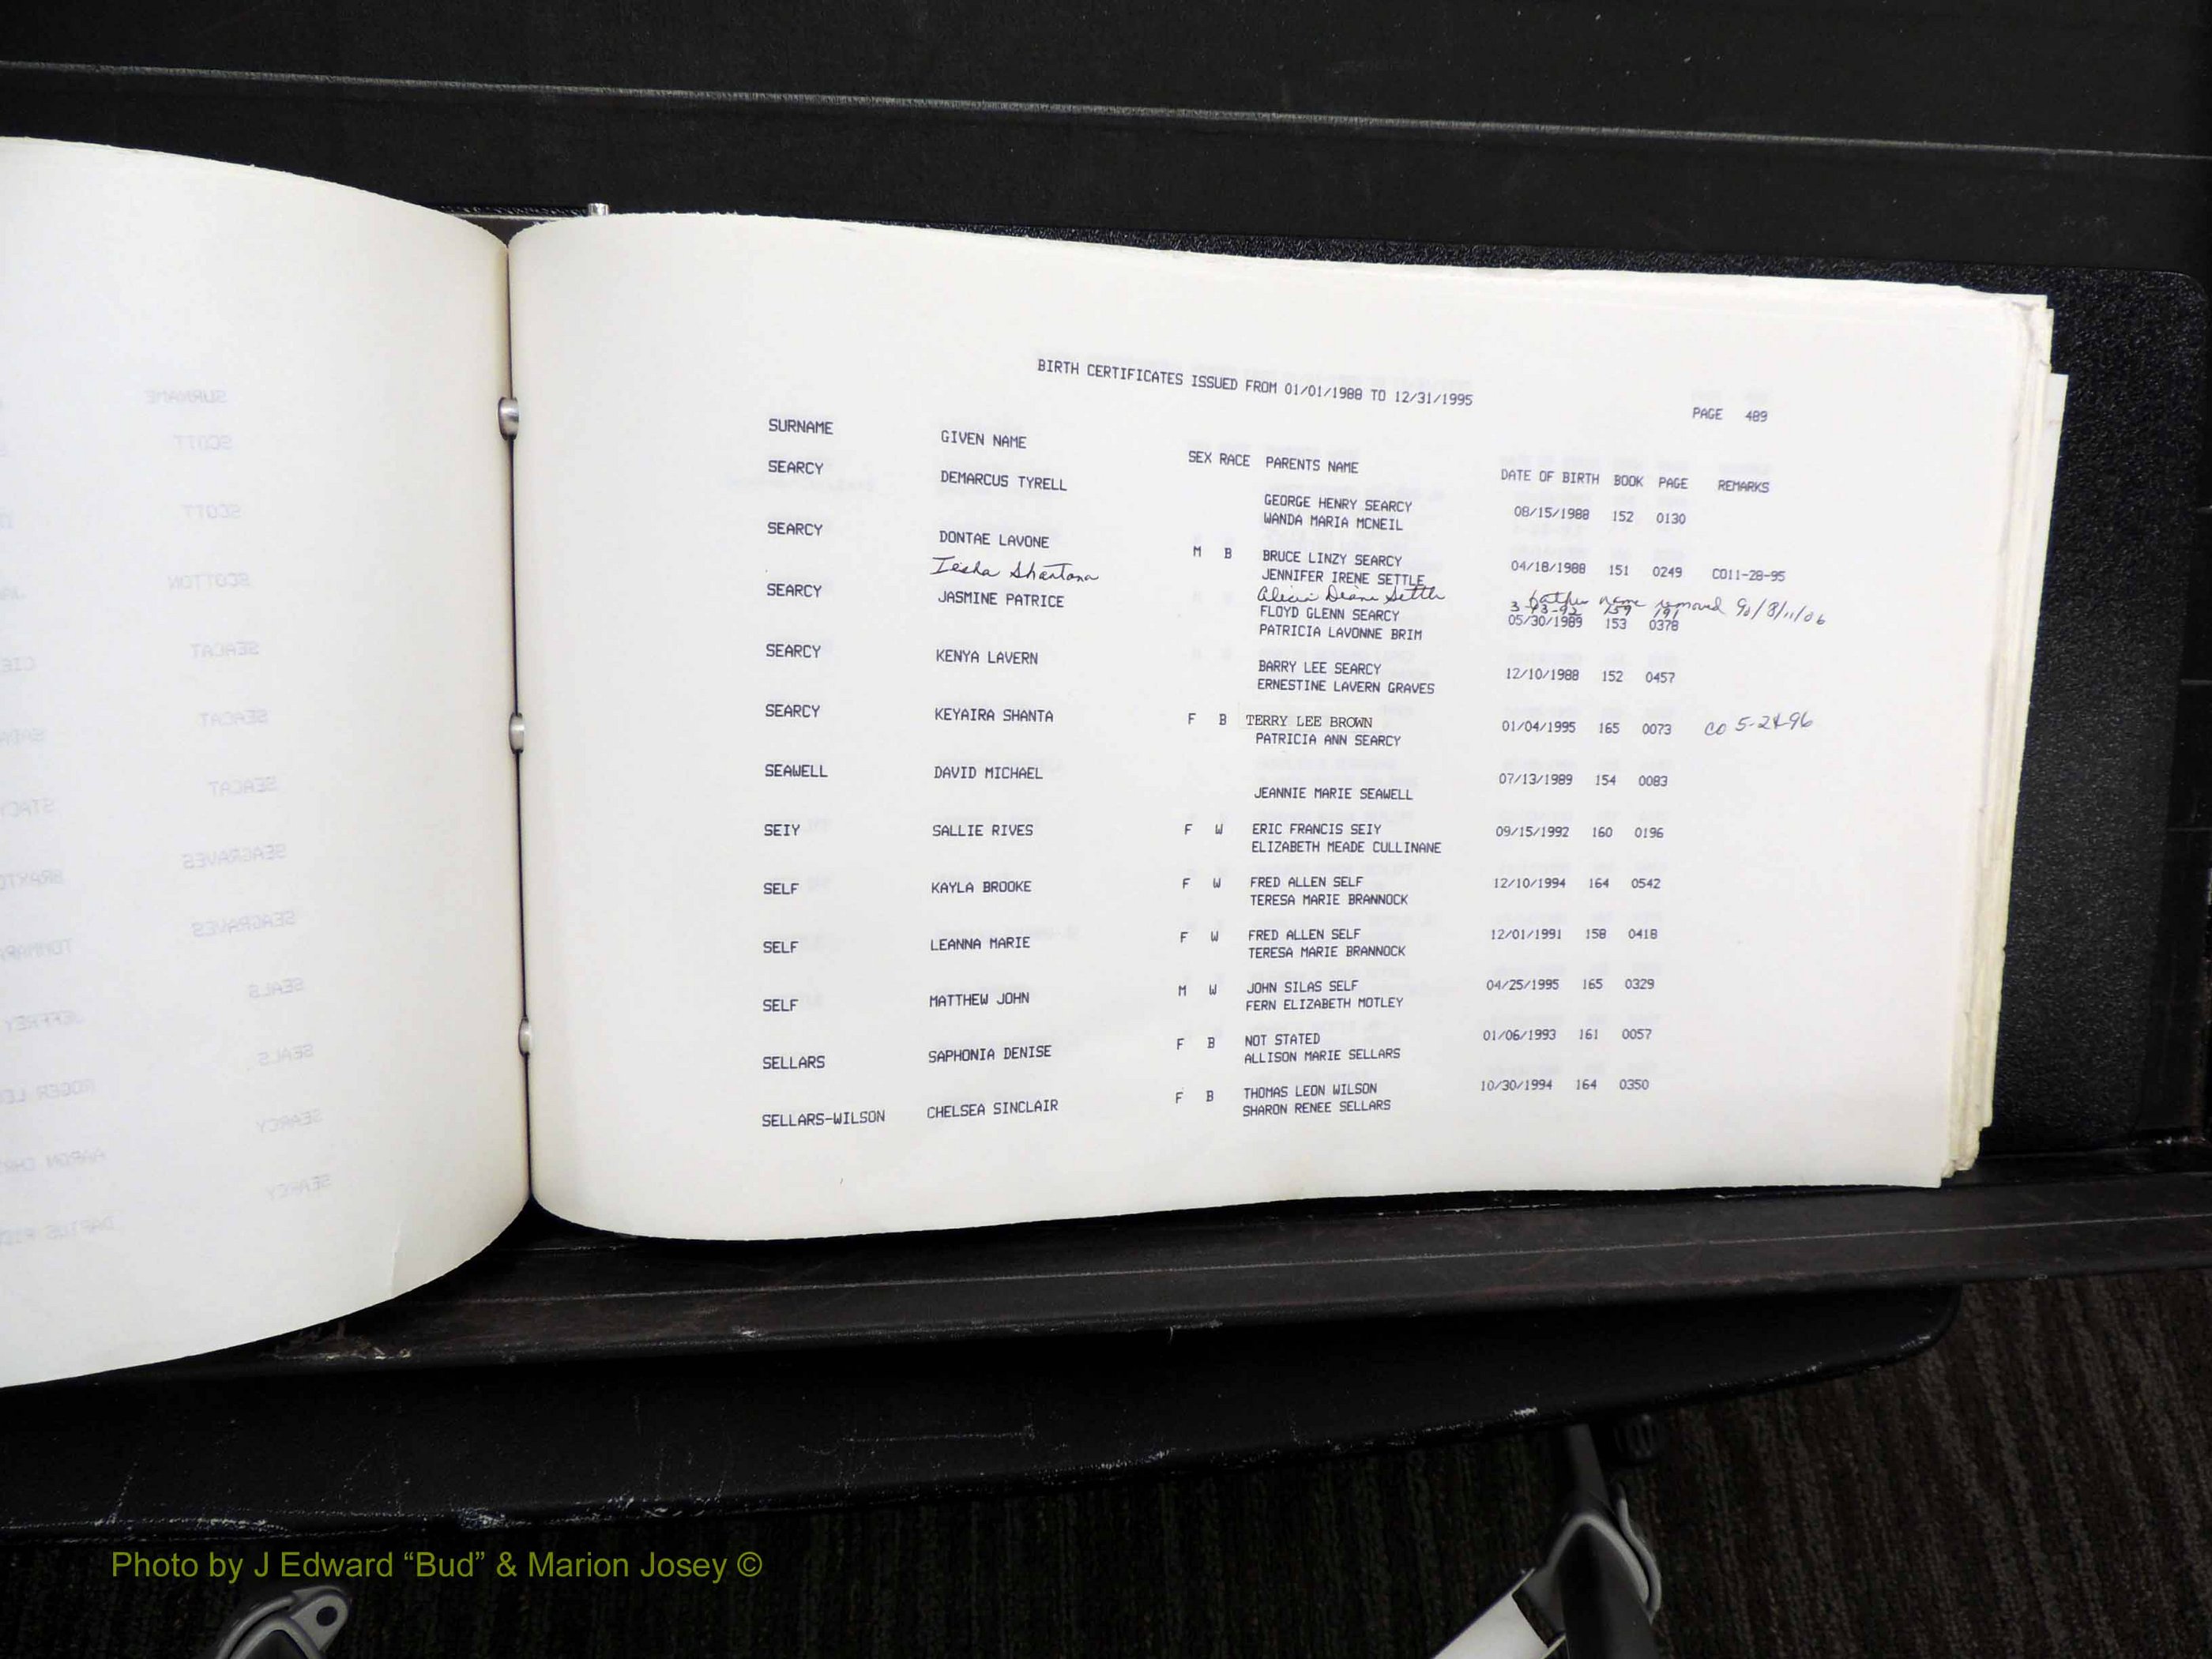 BIRTH CERTIFICATES ISSUED FROM 01/01/1988 TO 12/31/1995
PAGE 489
SURNAME GIVEN NAME SEX RACE PARENTS NAME DATE OF BIRTH BOOK PAGE REMARKS
SEARCY DEMARCUS TYRELL GEORGE HENRY SEARCY 08/15/1988 152 0130
WANDA MARIA MCNEIL
SEARCY DONTAE LAVONE M B BRUCE LINZY SEARCY 04/18/1988 151 0249 CO11-28-95
JENNIFER IRENE SETTLE
Iesha Shantana Alicia Diane Settle 3-13-92 159 191 father name removed 8/11/06
SEARCY JASMINE PATRICE FLOYD GLENN SEARCY 05/30/1989 153 0378
PATRICIA LAVONNE BRIM
SEARCY KENYA LAVERN BARRY LEE SEARCY 12/10/1988 152 0457
ERNESTINE LAVERN GRAVES
SEARCY KEYAIRA SHANTA F B TERRY LEE BROWN 01/04/1995 165 0073 CO 5-24-96
PATRICIA ANN SEARCY
SEAWELL DAVID MICHAEL 07/13/1989 154 0083
JEANNIE MARIE SEAWELL
SEIY SALLIE RIVES F W ERIC FRANCIS SEIY 09/15/1992 160 0196
ELIZABETH MEADE CULLINANE
SELF KAYLA BROOKE F W FRED ALLEN SELF 12/10/1994 164 0542
TERESA MARIE BRANNOCK
SELF LEANNA MARIE F W FRED ALLEN SELF 12/01/1991 158 0418
TERESA MARIE BRANNOCK
SELF MATTHEW JOHN M W JOHN SILAS SELF 04/25/1995 165 0329
FERN ELIZABETH MOTLEY
SELLARS SAPHONIA DENISE F B NOT STATED 01/06/1993 161 0057
ALLISON MARIE SELLARS
SELLARS-WILSON CHELSEA SINCLAIR F B THOMAS LEON WILSON 10/30/1994 164 0350
SHARON RENEE SELLARS
Photo by J Edward “Bud” & Marion Josey ©